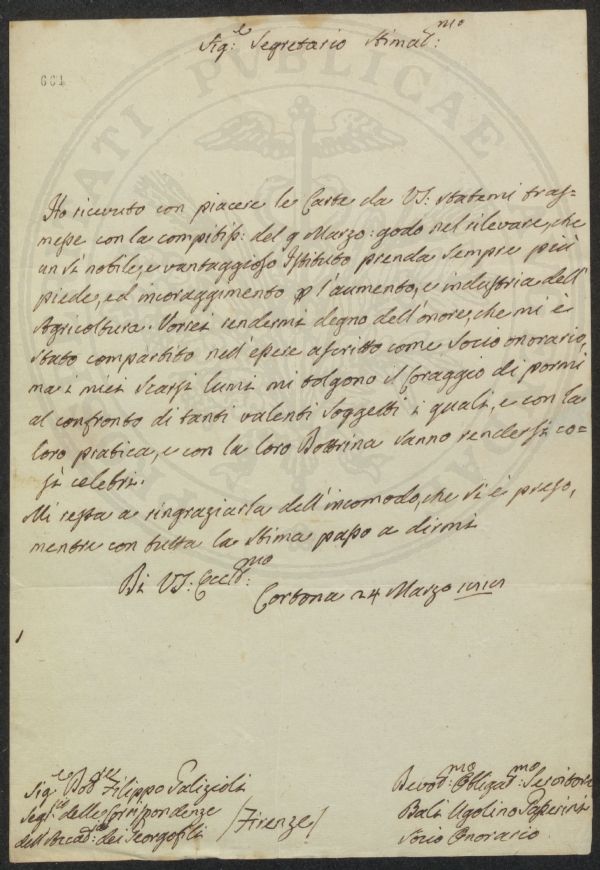 Sig:e Segretario Stimat:mo
664
Ho ricevuto con piacere le Carte da VS: statemi tras=
messe con la compitiss: del 9 Marzo: godo nel rilevare, che
un sì nobile, e vantaggioso Istituto prenda sempre più
piede, ed incoraggimento p l'aumento, e industria dell'
Agricoltura. Vorrei rendermi degno dell'onore, che mi è
stato compartito nell'essere ascritto come Socio onorario,
ma i miei scarsi lumi mi tolgono il Coraggio di pormi
al confronto di tanti valenti Soggetti i quali, e con la
loro pratica, e con la loro Dottrina sanno rendersi co=
sì celebri.
Mi resta a ringraziarla dell'incomodo, che si è preso,
mentre con tutta la stima passo a dirmi
Di VS: Eccl:mo
Cortona 24 Marzo
Sig:e Dot:re Filippo Gallizioli
Seg:rio delle Corrispondenze
dell'Accad:a dei Georgofili
/Firenze/
Devot:mo Obbligat:mo Servitore
Balì Ugolino Passerini
Socio Onorario
PUBLICAE